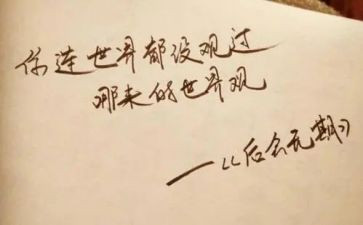 你连世界都没观过
哪来的世界观
——《后会无期》